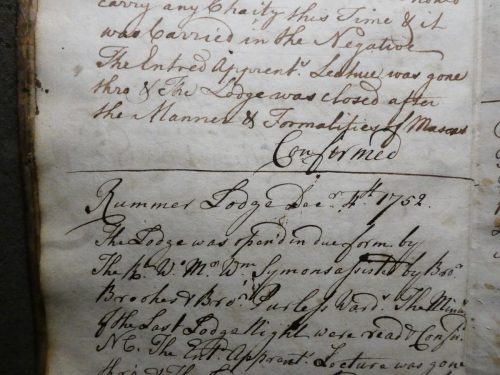 carry any Chaity this Time & it
was Carried in the Negative
The Entred Apprent.s Lectiue was gone
thro & The Lodge was closed after
the Manner & Formalities of Masons
Confirmed
Rummer Lodge Dec.r 4th 1752.
The Lodge was open'd in due form by
The R. W. Mr. Wm Symons assisted by Bro.r
Brookes & Bro.r Purless Ward.s The Minu
of the Last Lodge Night were read & Confir.
NC. The Ent.d Apprent.s Lecture was gone
thro' & The